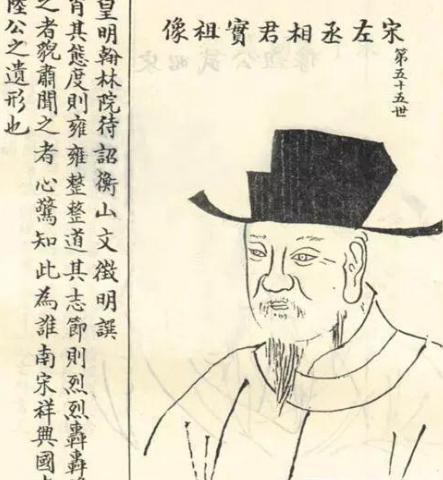 宋左丞相君實祖像
第五十五世
皇明翰林院待詔衡山文徵明譔
肖其態度則雍雍整整道其志節則烈烈轟轟
之者貌肅聞之者心驚知此為誰南宋祥興國
陸公之遺形也